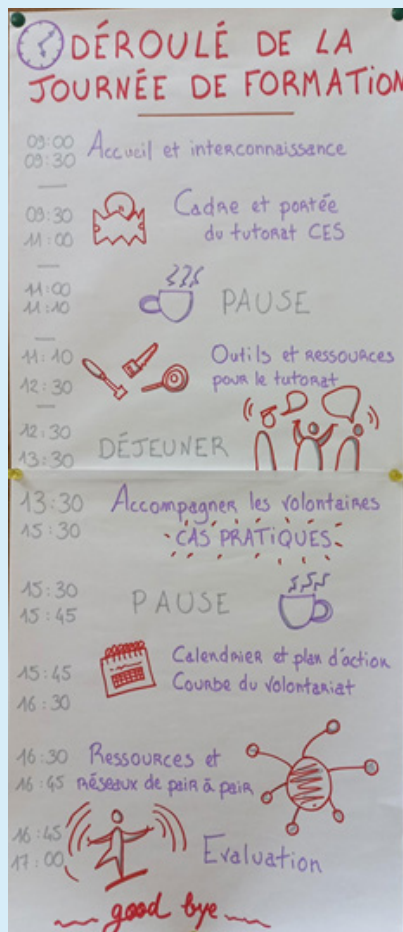 DÉROULÉ DE LA
JOURNÉE DE FORMATION
09:00
09:30
Accueil et interconnaissance
09:30
11:00
Cadre et portée
du tutorat CES
11:00
11:10
PAUSE
11:10
12:30
Outils et ressources
pour le tutorat
12:30
13:30
DÉJEUNER
13:30
15:30
Accompagner les volontaires
CAS PRATIQUES
15:30
15:45
PAUSE
15:45
16:30
Calendrier et plan d'action
Courbe du volontariat
16:30
16:45
Ressources et
réseaux de pair à pair
16:45
17:00
Evaluation
good bye